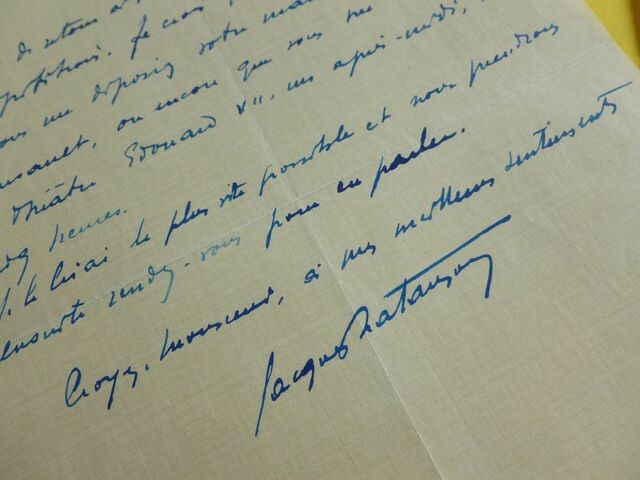 de retour à
Je crois
vous me déposiez votre man
ou encore que vous me
Théâtre Edouard VII, un après-midi,
heures.
Je le lirai le plus vite possible et nous prendrons
ensuite rendez-vous pour en parler.
Croyez, Monsieur, à mes meilleurs sentiments
Jacques Natanson